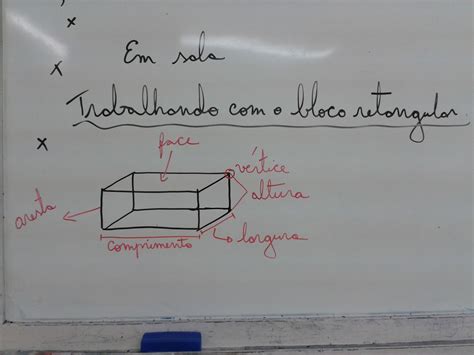 x
x
Em sala
Trabalhando com o bloco retangular.
x
face
vértice
altura
aresta
largura
comprimento